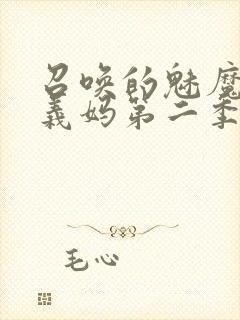 召唤的魅魔
义妈第二季
毛心